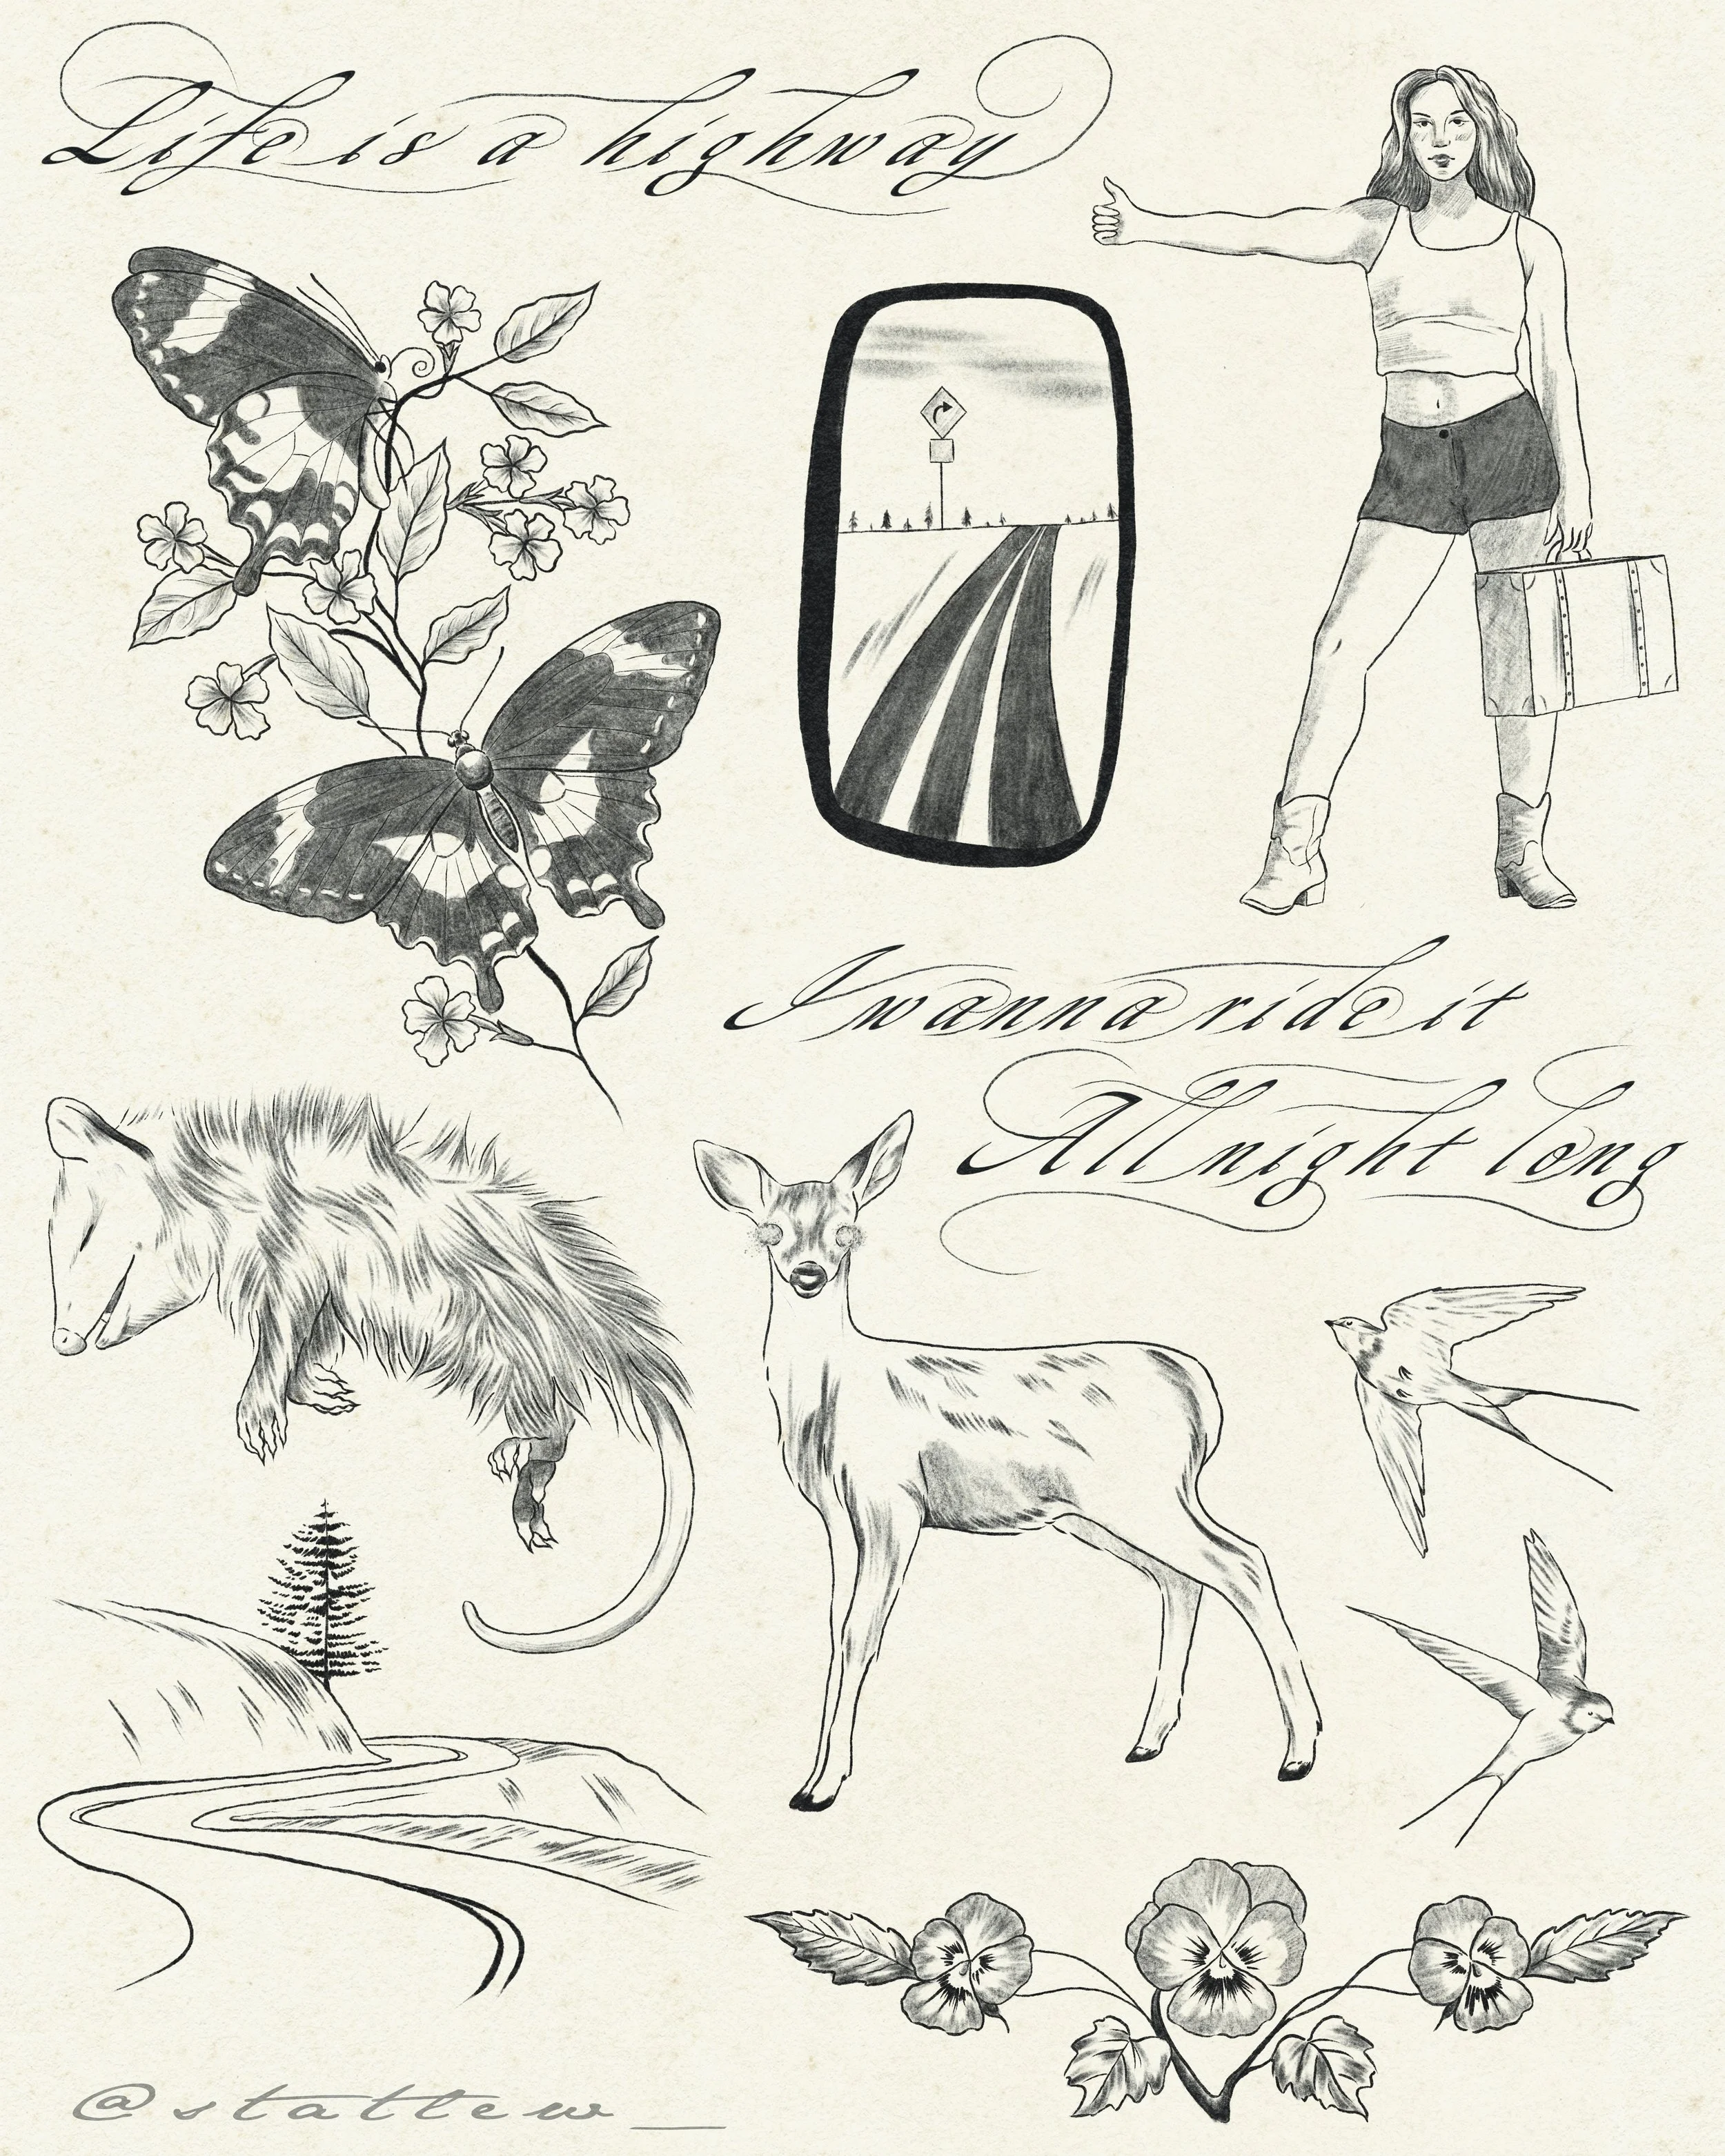 Life is a highway
I wanna ride it
All night long
@stattew_